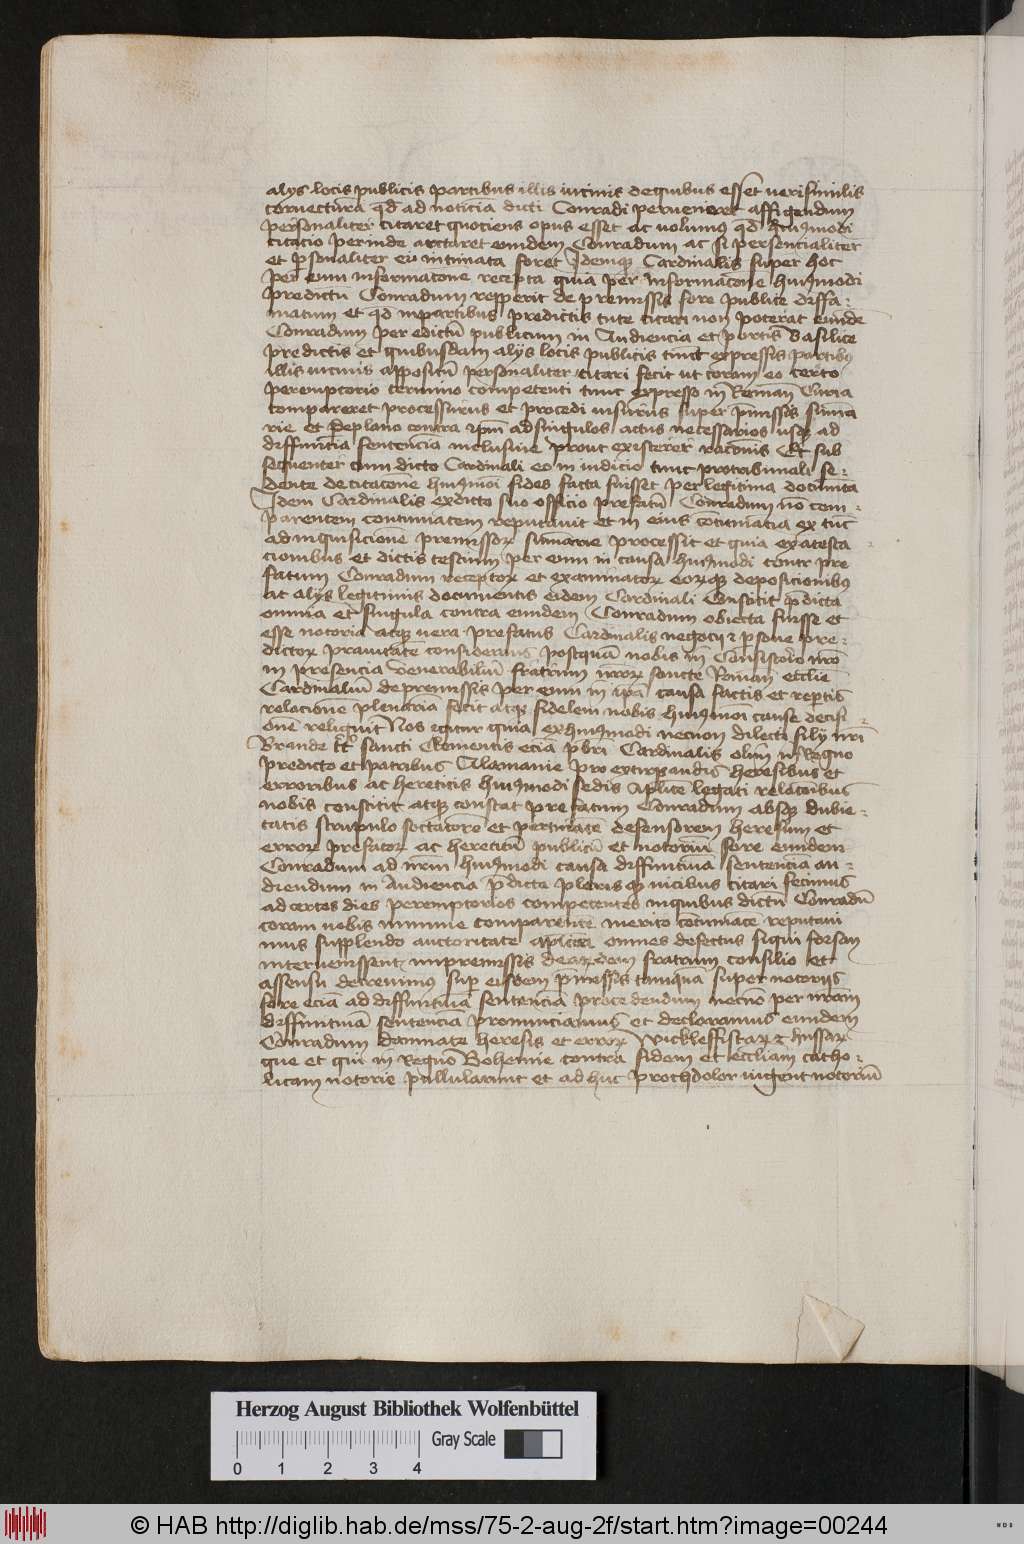 alijs locis publicis partibus illis vicinis de quibus esset verisimilis
coniectura qd ad noticia dicti Conradi perueneret affigendum
personaliter citaret quociens opus esset ac volumus qd huiusmodi
citacio perinde arctaret eundem Conradum ac si personcialiter
et psonaliter eu intimata foret Idemque Cardinalis super hoc
per eum informacone recepta quia per informacone huiusmodi
predictu Conradum repperit de premissis fore publice diffa-
matum et qd in partibus predictis tute citari non poterat eunde
Conradum per edictu publicum in Audiencia et portis Basilice
predictis et quibusdam alijs locis publicis tunc expressis partibus
illis vicinis appositu personaliter citari fecit ut coram eo certo
peremptorio termino competenti tunc expresso in Roman Curia
compareret processurus et procedi visurus super pmissis suma
rie et de plano contra ipm ad singulos actus necessarios usque ad
diffinitia sentencia inclusiue prout existeret raconis Et sub
sequenter cum dicto Cardinali eo in iudicio tunc pro tribunali se-
dente de citacone huiusmoi fides facta fuisset per legitima documta
Idem Cardinalis ex dicto suo officio prefatu Conradum no com-
parentem contumacem reputauit et in eius cotumacia ex tuc
ad inquisicione premissor sumarie processit et quia ex atesta
cionibus et dictis testium per eum in causa huiusmodi contr pre
fatum Conradum receptor et examinator eorque deposicionibus
ac alijs legitimis documentis eidem Cardinali constitit pdicta
omnia et singula contra eundem Conradum obiecta fuisse et
esse notoria atque vera prefatus Cardinalis negocij et psone pre-
dictor prauitate considerans postquam nobis in Consistorio nro
in presencia venerabiliu fratrum nror sancte Roman ecclie
Cardinaliu de premissis per eum in ipa causa factis et reptis
relacione plenaria fecit atque fidelem nobis huiusmoi cause decisi-
one reliquit Nos igitur quia ex huiusmodi necnon dilecti filij nri
Brande tt sancti Clementis ecia pbri Cardinalis olim in Regno
predicto et patribus Alamanie pro extirpandis heresibus et
erroribus ac hereticis huiusmodi sedis aplice legati relacoibus
nobis constitit atque constat prefatum Conradum absque dubie-
tatis scrupulo sectatore et pertinate defensorem heresum et
error prefator ac hereticu publicu et notoriu fore eundem
Conradum ad nram huiusmodi causa diffinitiua sentencia au-
diendum in Audiencia pdicta plerisque vicibus citari fecimus
ad certos dies peremptorios competentes in quibus dictu Conradu
coram nobis minime comparente merito cotumace reputaui
mus supplendo auctoritate aplica omnes defectus si qui forsan
interuenissent in premissis de eordem fratrum consilio et
assensu decreuimus sup eisdem pmissis tamqua super notorijs
fore ecia ad diffinitiua sentencia procedendum necno per nram
diffinitiua sentencia pronunciamus et declaramus eundem
Conradum damnate heresis et error Wickleffistar et hussar
que et qui in Regno Bohemie contra fidem et eccliam catho-
licam notorie pullularunt et ad huc prochdolor vigent notoriu
Herzog August Bibliothek Wolfenbüttel
Gray Scale
0 1 2 3 4
© HAB http://diglib.hab.de/mss/75-2-aug-2f/start.htm?image=00244